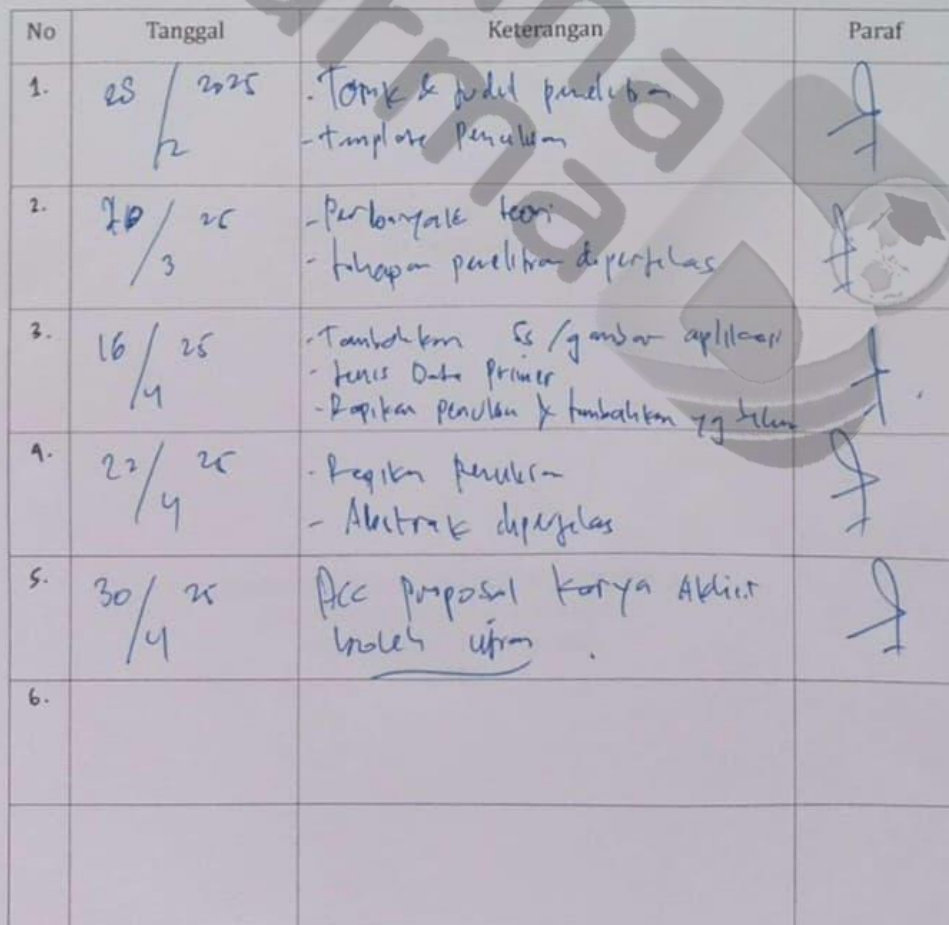 No Tanggal Keterangan Paraf
1. 28/2 2025 - Topik & judul penelitian
- template Penulisan
2. /3 25 - Perbanyak teori
- tahapan penelitian diperjelas
3. 16/4 25 - Tambahkan Ss/gambar aplikasi
- Jenis Data Primer
- Rapikan penulisan & tambahkan yg
4. 22/4 25 - Rapikan penulisan
- Abstrak diperjelas
5. 30/4 25 Acc proposal Karya Akhir
boleh ujian.
6.